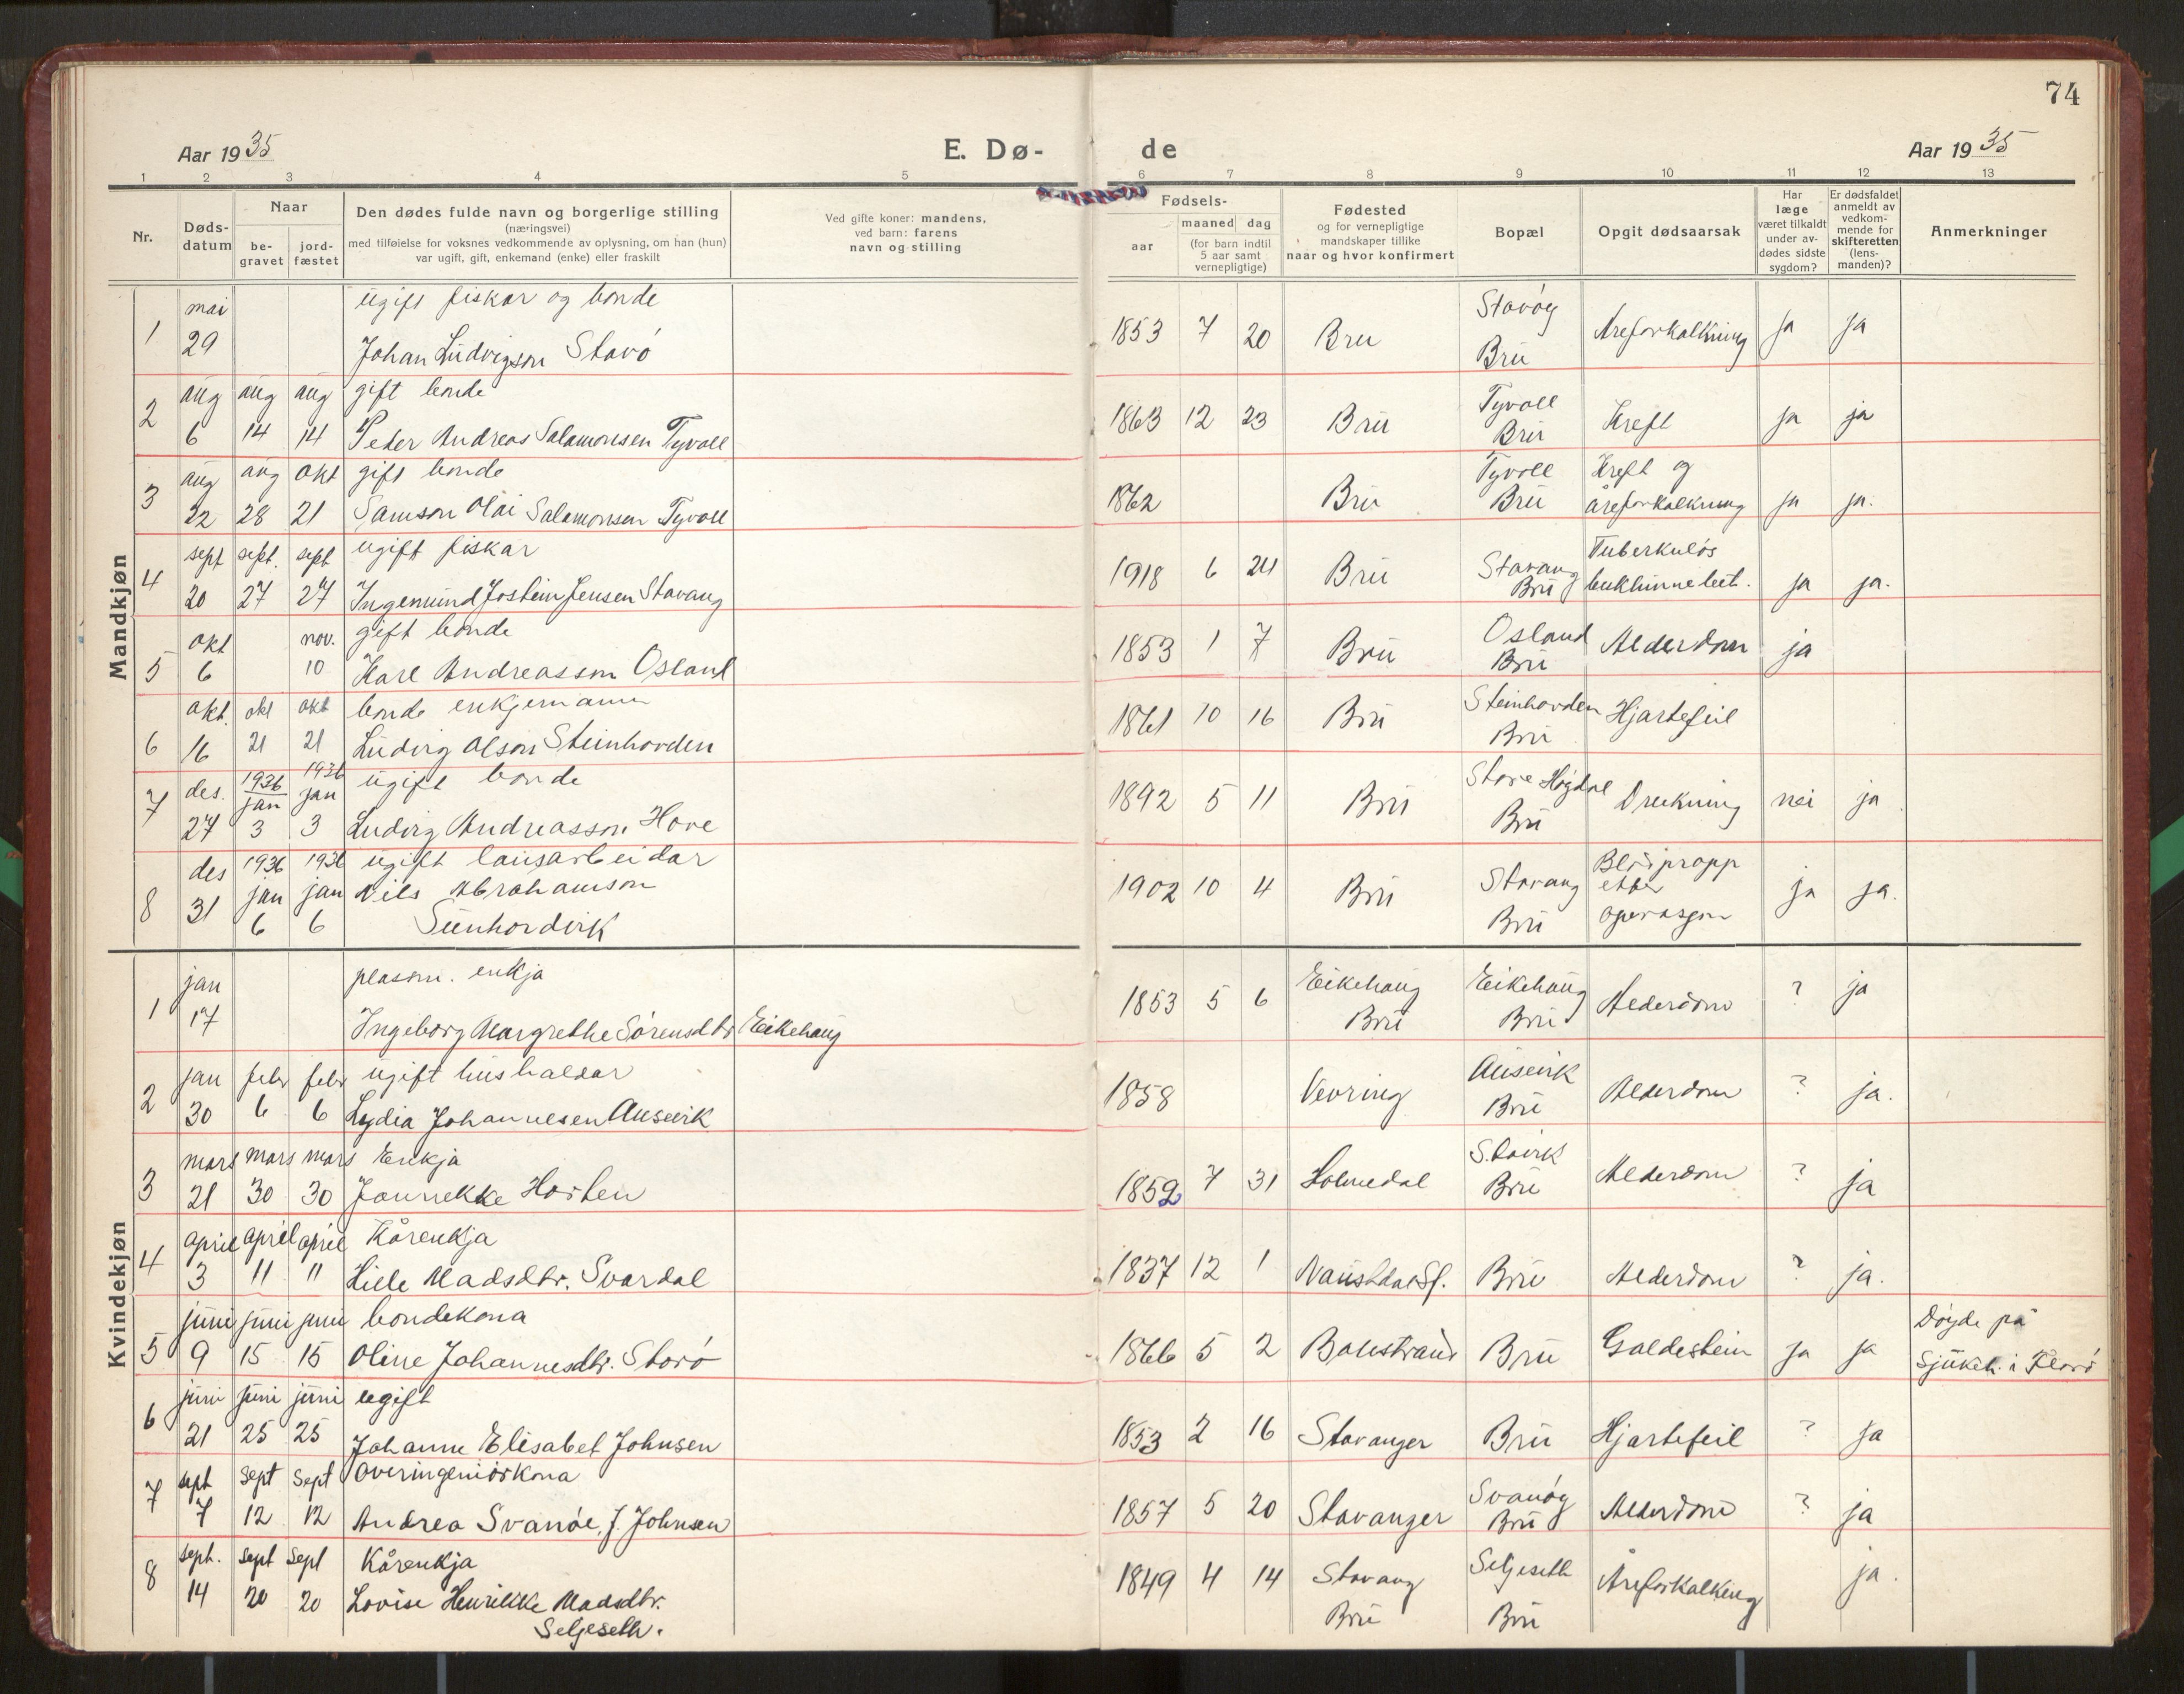 74
Aar 1935 E. Dø- de Aar 1935
1 2 3 4 5 6 7 8 9 10 11 12 13
Nr.
Døds-
datum
Naar
be-
gravet
jord-
fæstet
Den dødes fulde navn og borgerlige stilling
(næringsvei)
med tilføielse for voksnes vedkommende av oplysning, om han (hun)
var ugift, gift, enkemand (enke) eller fraskilt
Ved gifte koner: mandens,
ved barn: farens
navn og stilling
Fødsels-
aar
maaned dag
(for barn indtil
5 aar samt
vernepligtige)
Fødested
og for vernepligtige
mandskaper tillike
naar og hvor konfirmert
Bopæl
Opgit dødsaarsak
Har
læge
været tilkaldt
under av-
dødes sidste
sygdom?
Er dødsfaldet
anmeldt av
vedkom-
mende for
skifteretten
(lens-
manden)?
Anmerkninger
Mandkjøn
mai ugift fiskar og bonde Stavøy
1 29 Johan Ludvigson Stavö 1853 7 20 Bru Bru Åreforkalkning ja ja
aug aug aug gift bonde Tyvoll
2 6 14 14 Peder Andreas Salamonsen Tyvoll 1863 12 23 Bru Bru Kreft ja ja
aug aug okt gift bonde Tyvoll Kreft og
3 22 28 21 Samson Olai Salamonsen Tyvoll 1862 Bru Bru åreforkalkning ja ja.
sept sept. sept ugift fiskar Stavang Tuberkuløs
4 20 27 27 Ingemund Jostein Jensen Stavang 1918 6 24 Bru Bru bukhinnebet. ja ja.
okt nov. gift bonde Osland
5 6 10 Karl Andreasson Osland 1853 1 7 Bru Bru Alderdom ja
okt. okt okt bonde enkjemann Steinhovden
6 16 21 21 Ludvig Olson Steinhovden 1861 10 16 Bru Bru Hjartefeil
des. 1936 jan 1936 jan ugift bonde Store Høydal
7 27 3 3 Ludvig Andreasson Hove 1892 5 11 Bru Bru Drukning nei ja
des 1936 1936 ugift lausarbeidar Blodpropp
8 31 jan jan Nils Abrahamson 1902 10 4 Bru Stavang etter ja ja.
6 6 Sunhordvik Bru operasjon
Kvindekjøn
jan plassm. enkja Eikehaug Eikehaug
1 17 Ingeborg Margrethe Sørensdtr Eikehaug 1853 5 6 Bru Bru Alderdom ? ja
jan febr febr ugift hushaldar Ausevik
2 30 6 6 Lydia Johannesen Ausevik 1858 Vevring Bru Alderdom ? ja.
mars mars mars Enkja
3 21 30 30 Jannekke Hosten 1852 7 31 Holmedal Bru Alderdom ? ja
april april april Kårenkja
4 3 11 " Lille Madsdtr. Svardal 1837 12 1 Naustdal Sf. Bru Alderdom ? ja.
juni juni juni bondekona Døyde på
5 9 15 15 Oline Johannesdtr. Stavö 1866 5 2 Batnstrand Bru Galdestein ja ja Sjukeh. i Florö
juni juni juni ugift
6 21 25 25 Johanne Elisabet Johnsen 1853 2 16 Stavanger Bru Hjartefeil ? ja
sept sept sept overingeniörkona Svanøy
7 7 12 12 Andrea Svanöe, f. Johnsen 1857 5 20 Stavanger Bru Alderdom ? ja
sept. sept sept Kårenkja Seljeseth
8 14 20 20 Lovise Henrikke Madsdtr. 1849 4 14 Stavang Åreforkalking ja.
Seljeseth. Bru Bru